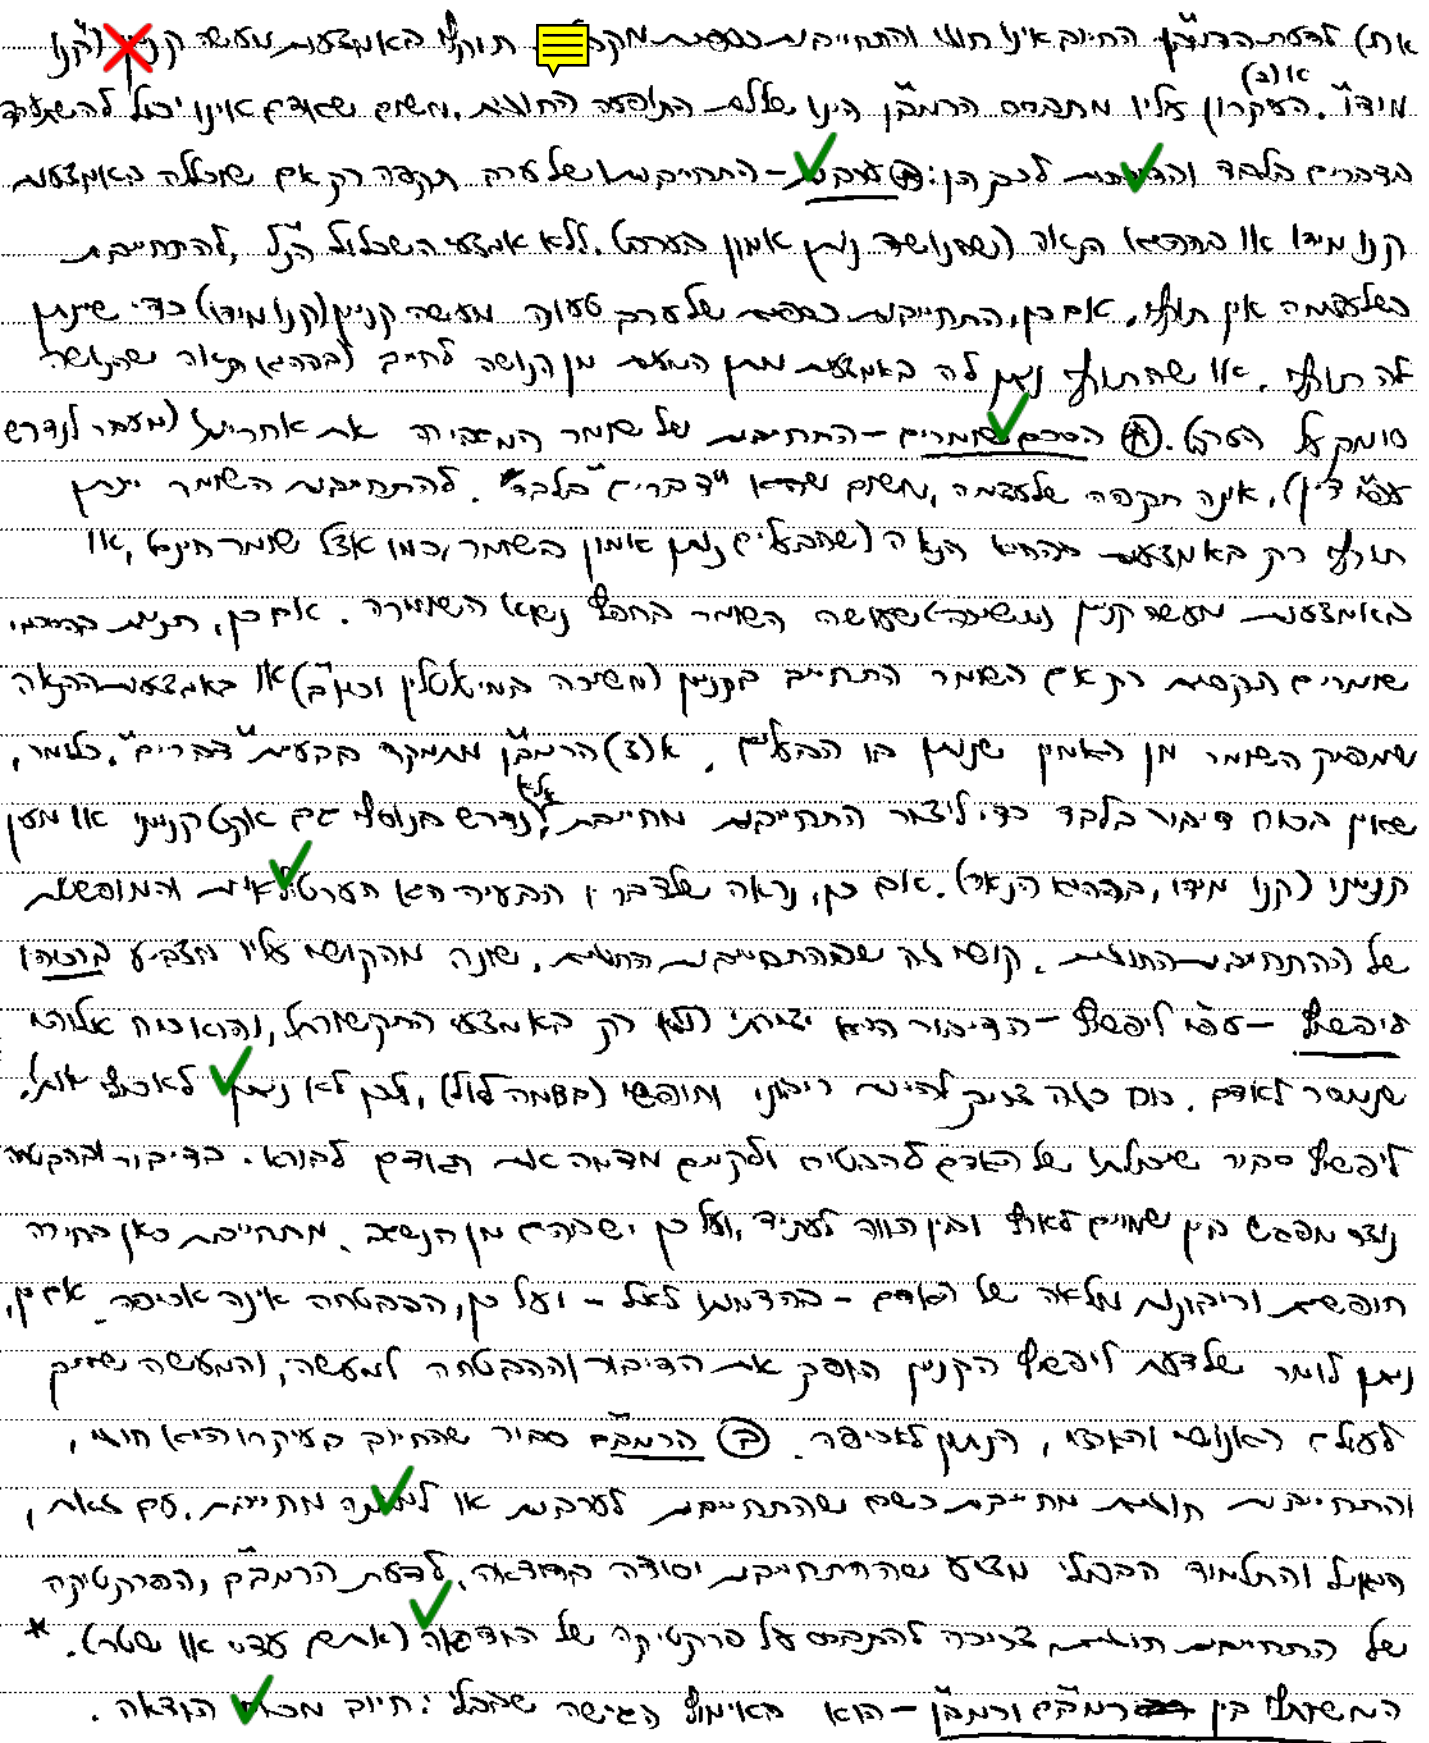 את) לדעת הרמב"ן החיוב אינו חוזי והתחייבות כספית תוקף באמצעות מעשה קניין (קנו
או (ב)
מידו". העקרון עליו מתבסס הרמב"ן הינו שלילת התופעה החוזית, משום שאדם אינו יכול להשתעבד
בדברים בלבד לכך הן: (א) ערבות - התחייבותו של ערב תקפה רק אם שוכללה באמצעות
קנו מידו או בההיא הנאה (שהנושה נותן אמון בערב). ללא אמצעי השכלול הנ"ל, להתחייבות
כשלעצמה אין תוקף. אם כן, התחייבות כספית של ערב טעונה מעשה קניין (קנו מידו) כדי שינתן
לה תוקף, או שהתוקף ניתן לה באמצעות מתן המעות מן הנושה לחייב (בההיא הנאה שהנושה
סומך על הערב). (א) הסכם שומרים - התחייבות של שומר המגבירה את אחריותו (מעבר לנדרש
עפ"י דין), אינה תקפה שלעצמה, משום שהיא "דברים בלבד". להתחייבות השומר יינתן
תוקף רק באמצעות בההיא הנאה (שהבעלים נותן אמון בשומר, כמו אצל שומר חינם), או
באמצעות מעשה קניין (משיכה) שעושה השומר בחפץ נשא השמירה. אם כן, תניות בהסכמי
שומרים תקפות רק אם השומר התחייב בקניין (משיכה במיטלטלין וכיו"ב) או באמצעות ההנאה
שמפיק השומר מן האמון שנותן בו הבעלים. א(3) הרמב"ן מתמקד בבעיית "דברים". כלומר,
אלא
שאין בכוח דיבור בלבד כדי ליצור התחייבות מחייבת, נדרש בנוסף גם אקט קנייני או מעין
קנייני (קנו מידו, בההיא הנאה). אם כן, נראה שלדברו הבעיה היא הערטילאיות והמופשטות
של ההתחייבות החוזית. קושי זה שבהתחייבות החוזית, שונה מהקושי עליו מצביע ברוכיהו
ליפשיץ - עפ"י ליפשיץ - הדיבור היא יצירתי ולא רק באמצעי התקשורתי, והוא כוח אלוהי
שנמסר לאדם. כוח כזה צריך להיות ריבוני וחופשי (בדומה לאל), לכן לא ניתן לאכוף אותו.
ליפשיץ סבור שיכולתו של האדם להבטיח ולקיים מדמה את האדם לבורא. בדיבור ובהבטחה
נוצר מפגש בין שמיים לארץ ובין הווה לעתיד, ועל כן יש בהם מן הנשגב. מתחייבת כאן בחירה
חופשית וריבונות מלאה של האדם - בהדמותו לאל - ועל כן, ההבטחה אינה אכיפה. אם כן,
ניתן לומר שלדעת ליפשיץ הקניין הופך את הדיבור וההבטחה למעשה, והמעשה שייך
לעולם האנושי והארצי, הנתון לאכיפה. (ב) הרמב"ם סבור שהחיוב בעיקרו הוא חוזי,
והתחייבות חוזית מחייבת כשם שהתחייבות לערבות או למתנה מחייבת. עם זאת,
הואיל והתלמוד הבבלי מציע שההתחייבות יסודה בהודאה, לדעת הרמב"ם, הפרקטיקה
של התחייבות חוזית צריכה להתבסס על פרקטיקה של הודאה (אתם עדיי או שטר). *
המשותף בין רמב"ם ורמב"ן - הוא באימוץ הגישה שבבבלי: חיוב מכוח הודאה.